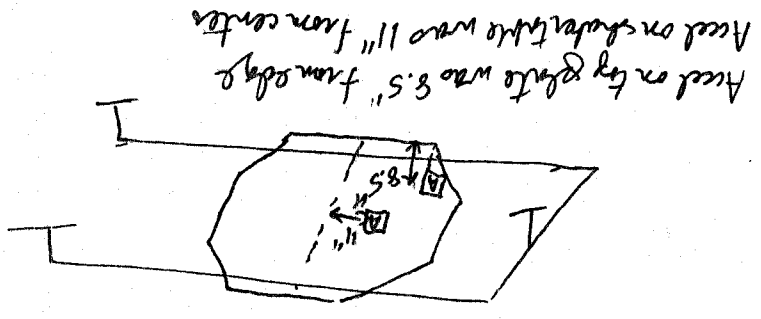 A 11"
A 8.5"
Accel on top plate was 8.5" from edge
Accel on shaker table was 11" from center